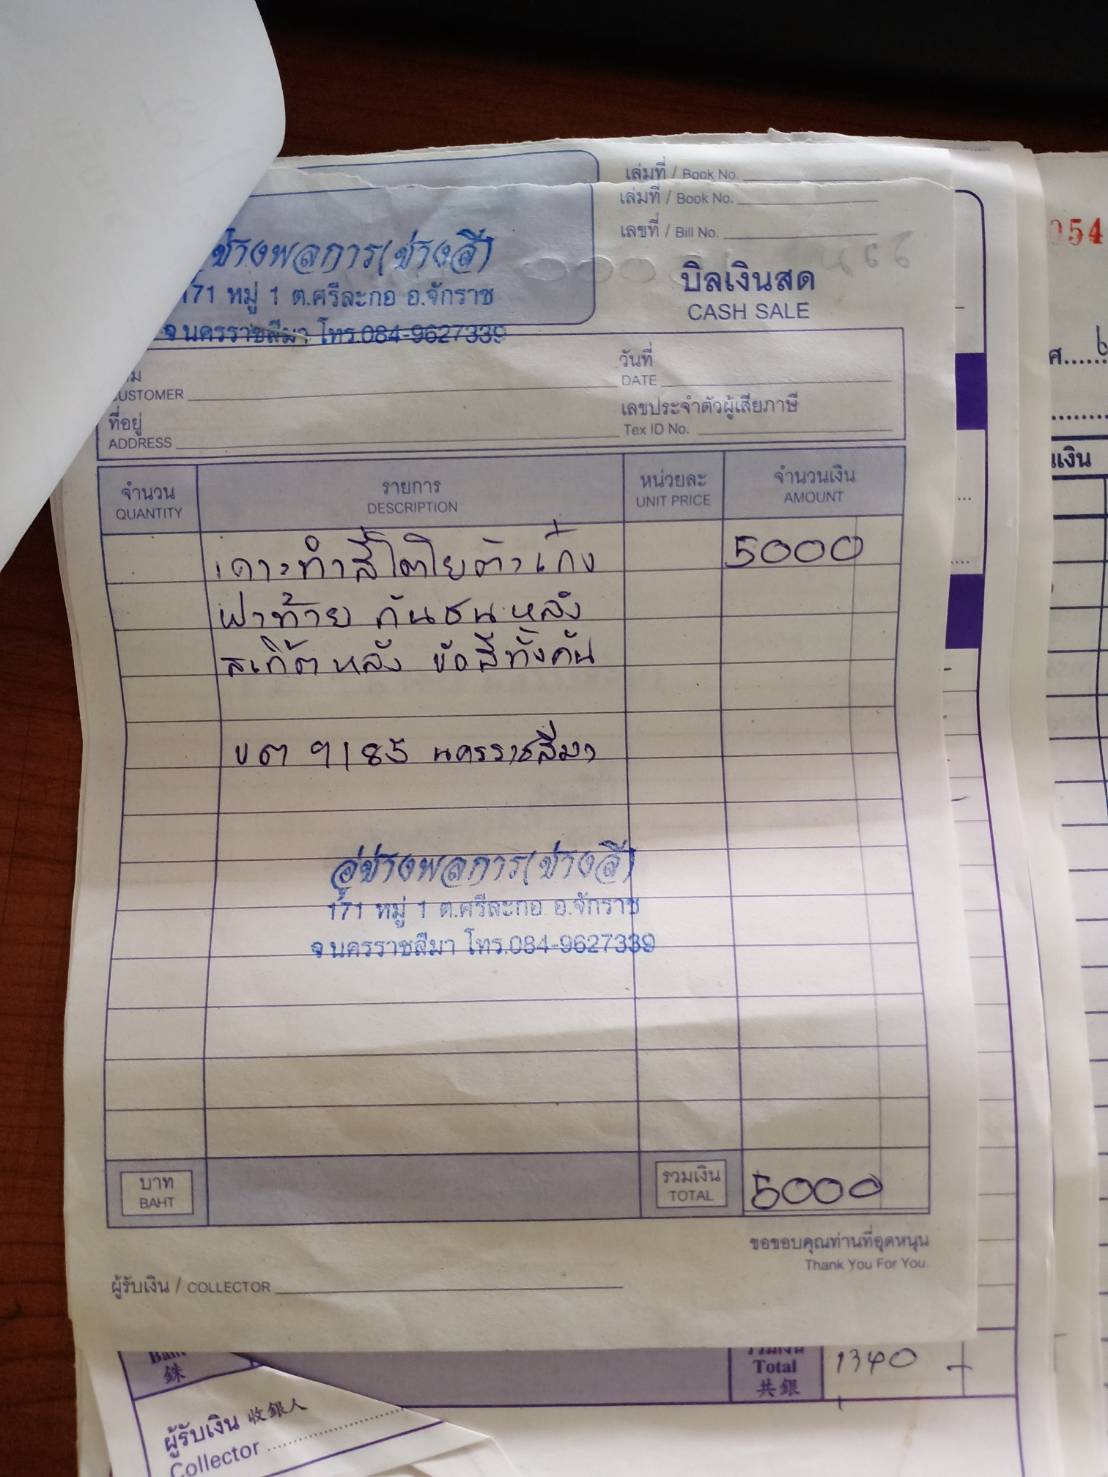 เล่มที่ / Book No.
เล่มที่ / Book No.
เลขที่ / Bill No.
ช่างพลการ(ช่างสี)
171 หมู่ 1 ต.ศรีละกอ อ.จักราช
จ.นครราชสีมา โทร.084-9627339
บิลเงินสด
CASH SALE
054
วันที่
DATE
CUSTOMER
เลขประจำตัวผู้เสียภาษี
Tex ID No.
ที่อยู่
ADDRESS
จำนวน
QUANTITY
รายการ
DESCRIPTION
หน่วยละ
UNIT PRICE
จำนวนเงิน
AMOUNT
เคาะทำสีโตโยต้าเก๋ง 5000
ฝาท้าย กันชนหลัง
สเกิ๊ตหลัง ขัดสีทั้งคัน
ขต 9185 นครราชสีมา
อู่ช่างพลการ(ช่างสี)
171 หมู่ 1 ต.ศรีละกอ อ.จักราช
จ.นครราชสีมา โทร.084-9627339
บาท
BAHT
รวมเงิน
TOTAL
5000
ขอขอบคุณท่านที่อุดหนุน
Thank You For You.
ผู้รับเงิน / COLLECTOR
Baht
銖
รวมเงิน
Total
共銀
1340
ผู้รับเงิน 收銀人
Collector